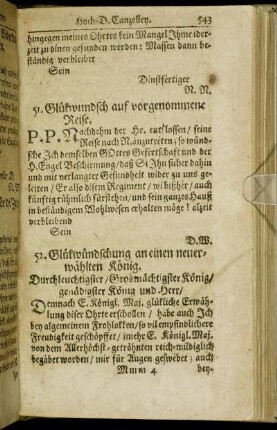 Hoch-D. Canzelley. 543
hingegen meines Ohrtes kein Mangel Jhme ider-
zeit zu dinen gefunden werden: Massen dann be-
ständig verbleibet
Sein
Dinstfertiger
N. N.
51. Glükwundsch auf vorgenommene
Reise.
P. P. Nachdehm der Hr. entslossen / seine
Reise nach N anzutreten; so wünd-
sche Jch demselben GOttes Gefertschaft und der
H. Engel Beschirmung / daß Si Jhn sicher dahin
und mit verlangter Gesundheit wider zu uns ge-
leiten / Er also disem Regiment / wi bißhehr / auch
künftig rühmlich fürstehen / und sein ganzes Hauß
in beständigem Wohlwesen erhalten möge! alzeit
verbleibend
Sein
D. W.
52. Glükwündschung an einen neuer-
wählten König.
Durchleuchtigster / Grosmächtigster König /
genädigster König und Herr /
Demnach E. Königl. Maj. glükliche Erwäh-
lung diser Ohrte erschollen / habe auch Jch
bey algemeinem Frohlokken / so vil empfindlichere
Freudigkeit geschöpffet / je mehr E. Königl. Maj.
von dem Allerhöchst-geröhnten reich-mildiglich
begabet worden / mir für Augen geswebet; auch
Mmm 4 bey-